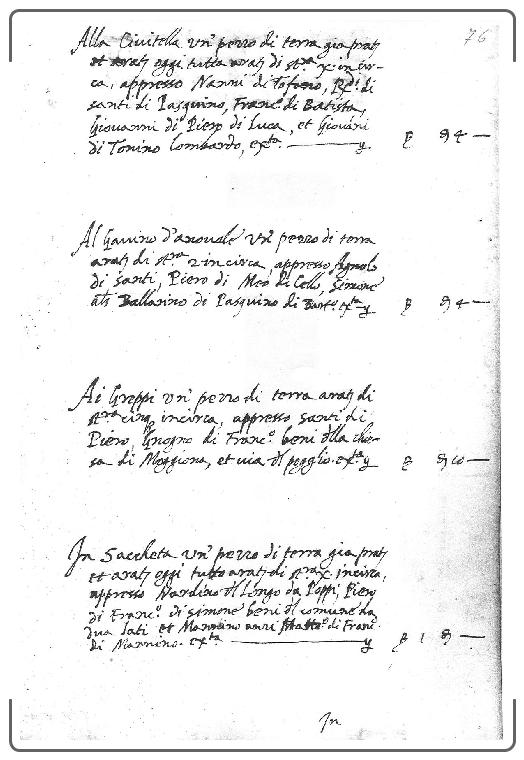 76
Alla Civitella un' pezzo di terra gia prat.
et arat. oggi tutta arat. di st.ra x. in cir-
ca, appresso Nanni di Tofano, Red.i di
santi di Pasquino, Franc.o di Batista,
Giovanni di Piero di Luca, et Giovani
di Tonino lombardo, ex.ta — 4 —
Al Gavino d'anovale un' pezzo di terra
arat. di st.ra 2 incirca, appresso Agnolo
di santi, Piero di Meo di Cello, Simone
als Ballarino di Pasquino di Bart.o ex.ta 4 —
Ai Greppi un' pezzo di terra arat. di
st.ra cinq. incirca, appresso santi di
Piero, Gnogno di Franc.o beni d'lla chie-
sa di Moggiona, et via d'l poggio. ex.ta 10 —
In Saccheta un' pezzo di terra gia prat.
et arat. oggi tutto arat. di st.ra x. incirca,
appresso Nardino d'l longo da Poppi, Piero
di Franc.o di simone beni d'l comune da
dua lati et Mannino di Franc.o
di Mannino. ex.ta — 1 —
In